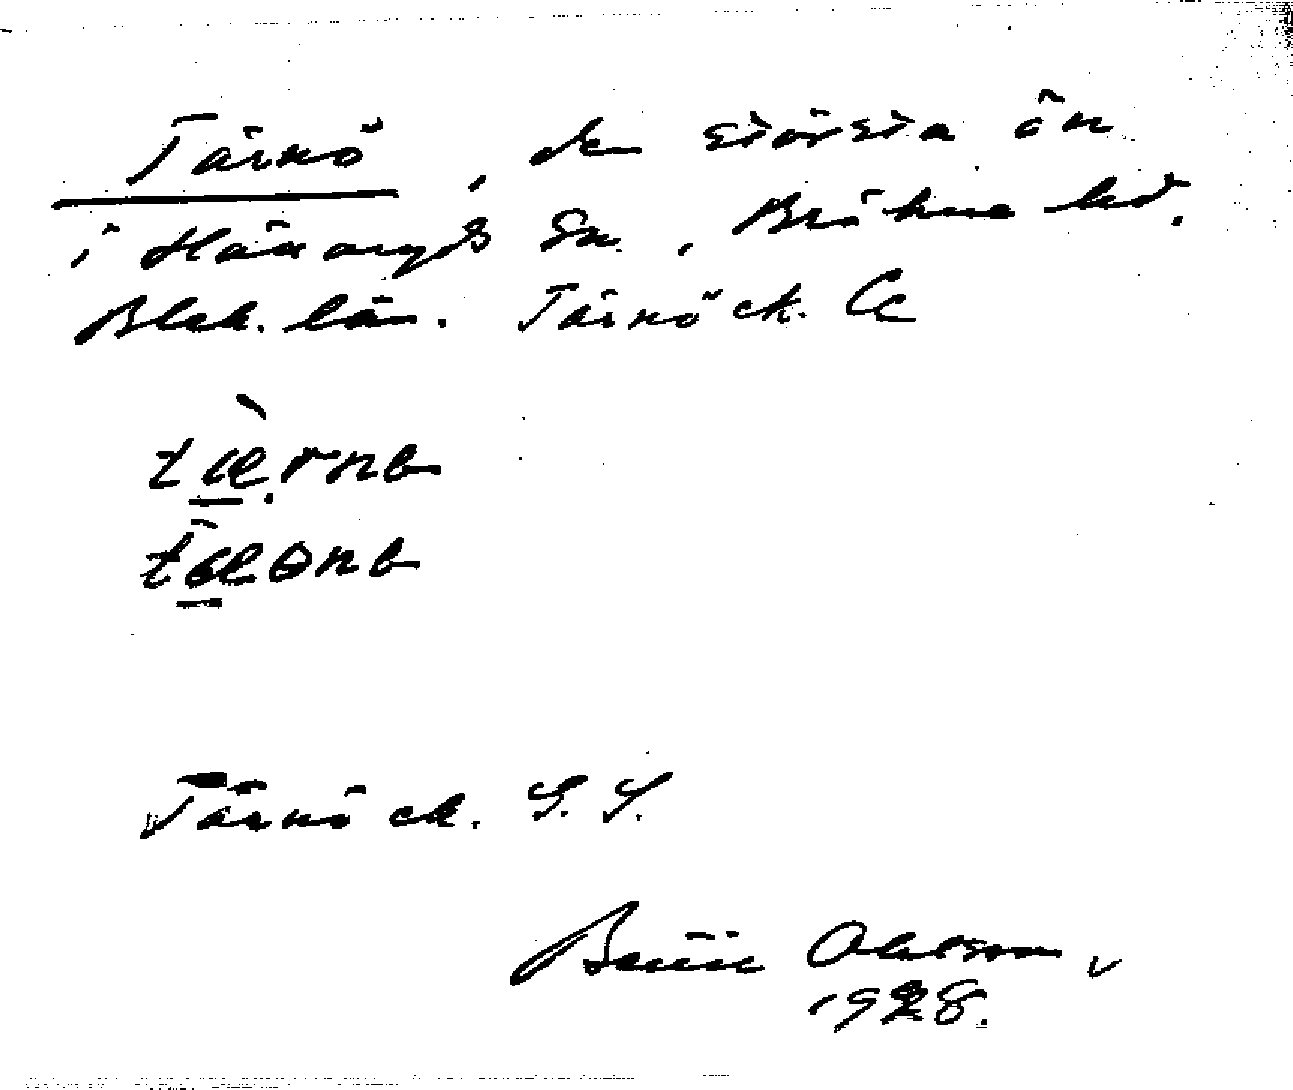 Tärnö, den största ön
i Hällaryds Sn. Bräkne hd.
Blek. län. Tärnö ek.
tæ.rnɵ
Tärnö ek. S. S.
Bertil Ohlson
1928.